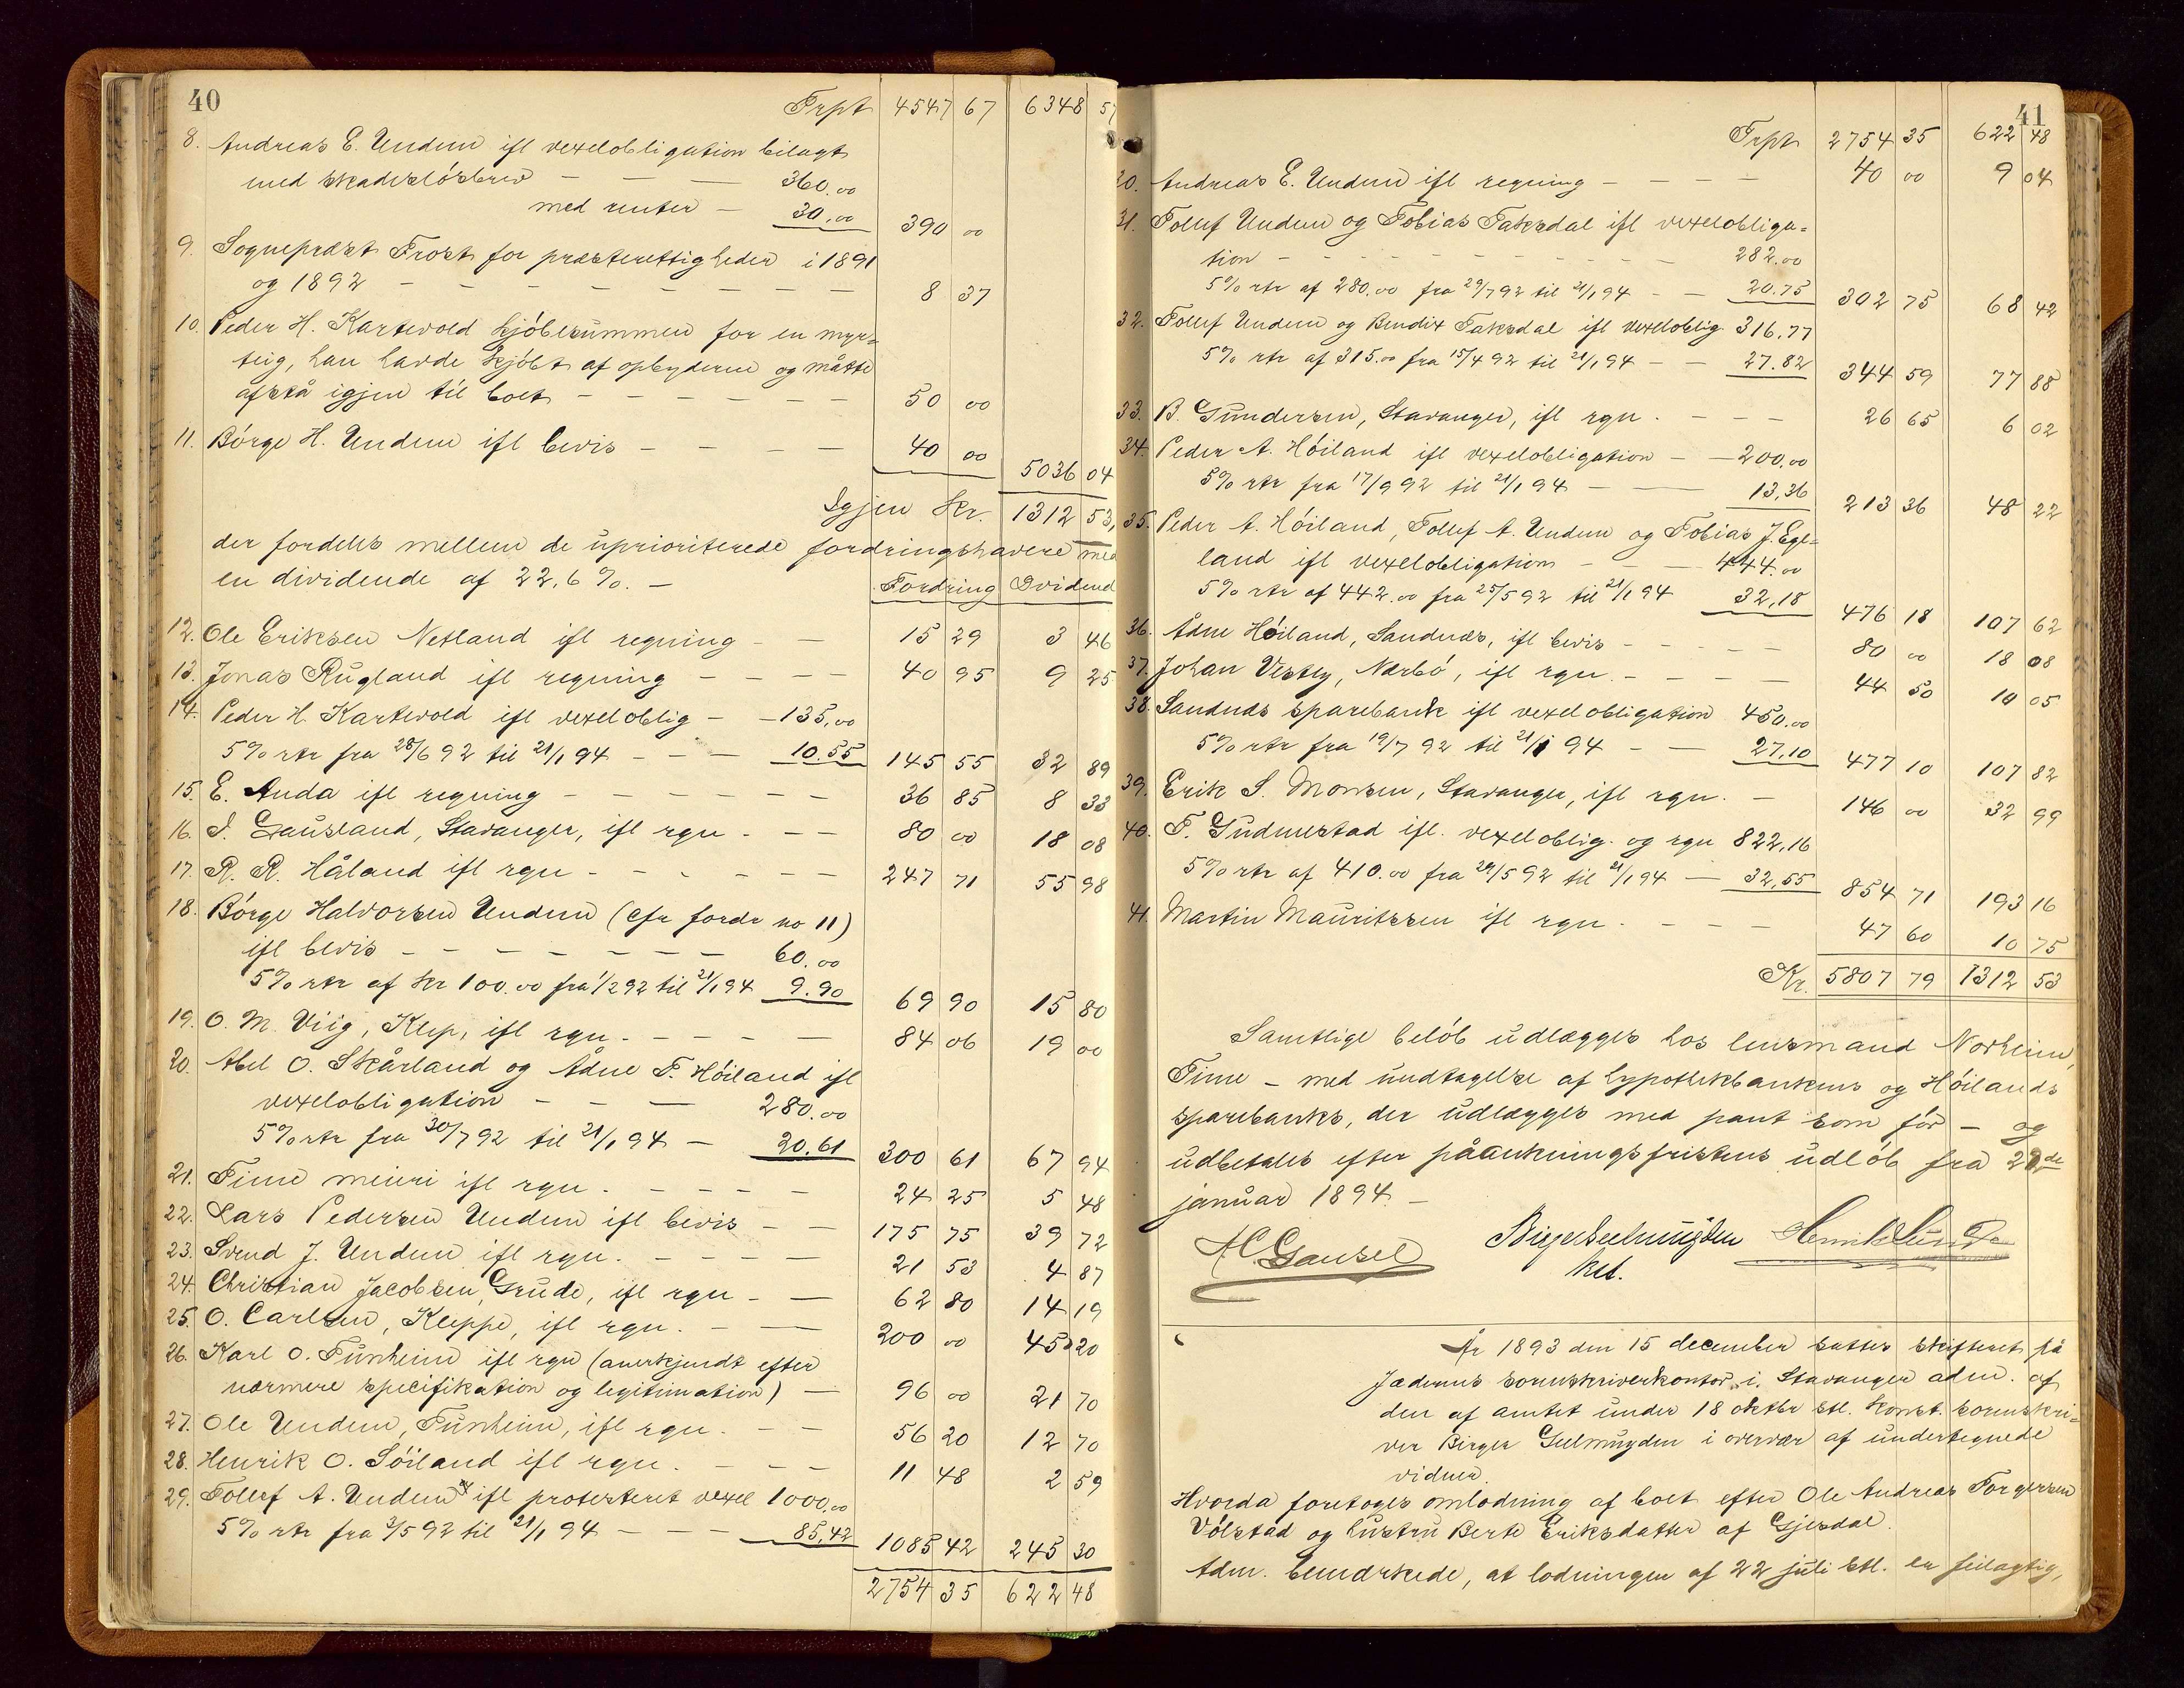 40
Frpt 4547 67 6348 57
8. Andreas E. Undem ifl vexelobligation bilagt
med skadesløsbrev — — 360.00
med renter — 30.00 390 00
9. Sognepræst Frost for præsterettigheder i 1891
og 1892 — — — — — — — 8 37
10. Peder H. Kartevold kjøbesummen for en myr-
teig, han havde kjøbt af opbyderne og måtte
afstå igjen til boet — — — — — — 50 00
11. Børge H. Undem ifl bevis — — — — 40 00
5036 04
Igjen Kr. 1312 53,
der fordeles mellem de uprioriterede fordringshavere med
en dividende af 22,6 %. — Fordring Dividend
12. Ole Eriksen Netland ifl regning — — 15 29 3 46
13. Jonas Rugland ifl regning — — — — 40 95 9 25
14. Peder H. Kartevold ifl vexeloblig — — 135,00
5% rtr fra 28/6 92 til 21/1 94 — — — 10.55 145 55 32 89
15. E. Anda ifl regning — — — — — — 36 85 8 33
16. S. Gausland, Stavanger, ifl rgn — — — 80 00 18 08
17. R. R. Håland ifl rgn — — — — — — 247 71 55 98
18. Børge Halvorsen Undem (cfr fordr no 11)
ifl bevis — — — — — — — 60.00
5% rtr af kr 100.00 fra 1/2 92 til 21/1 94 9.90 69 90 15 80
19. O. M. Viig, Klep, ifl rgn. — — — — — 84 06 19 00
20. Abel O. Skårland og Ådne T. Høiland ifl
vexelobligation — — — 280.00
5% rtr fra 30/7 92 til 21/1 94 — 20.61 300 61 67 94
21. Time meieri ifl rgn. — — — — — 24 25 5 48
22. Lars Pedersen Undem ifl bevis — — 175 75 39 72
23. Svend J. Undem ifl rgn. — — — — 21 53 4 87
24. Christian Jacobsen Grude, ifl rgn — — 62 80 14 19
25. O. Carlsen, Kleppe, ifl rgn. — — 200 00 45 20
26. Karl O. Tunheim ifl rgn (anerkjendt efter
nærmere specifikation og legitimation) — 96 00 21 70
27. Ole Undem, Tunheim, ifl rgn. — — 56 20 12 70
28. Henrik O. Søiland ifl rgn. — — — 11 48 2 59
29. Tollef A. Undem ifl protesteret vexel 1000,00
5% rtr fra 3/5 92 til 21/1 94 — — — 85,42 1085 42 245 30
2754 35 622 48
41
Frpt 2754 35 622 48
30. Andreas E. Undem ifl regning — — — — 40 00 9 04
31. Tollef Undem og Tobias Taksdal ifl vexelobliga-
tion — — — — — — — — — 282.00
5% rtr af 280.00 fra 29/7 92 til 21/1 94 — — 20.75 302 75 68 42
32. Tollef Undem og Bendix Taksdal ifl vexeloblig. 316,77
5% rtr af 315.00 fra 15/4 92 til 21/1 94 — — 27.82 344 59 77 88
33. B. Gundersen, Stavanger, ifl rgn. — — — 26 65 6 02
34. Peder A. Høiland ifl vexelobligation — — 200.00
5% rtr fra 17/9 92 til 21/1 94 — — 13,36 213 36 48 22
35. Peder A. Høiland, Tollef A. Undem og Tobias J. Ege-
land ifl vexelobligation — — — 444.00
5% rtr af 442.00 fra 25/5 92 til 21/1 94 32,18 476 18 107 62
36. Ådne Høiland, Sandnæs, ifl bevis — — — — — 80 00 18 08
37. Johan Vestly, Nærbø, ifl rgn. — — — — — 44 50 10 05
38. Sandnæs sparebank ifl vexelobligation 450.00
5% rtr fra 19/7 92 til 21/1 94 — — 27,10 477 10 107 82
39. Erik S. Monsen, Stavanger, ifl rgn. — 146 00 32 99
40. T. Gudmestad ifl. vexeloblig. og rgn 822,16
5% rtr af 410.00 fra 24/5 92 til 21/1 94 — 32,55 854 71 193 16
41. Martin Mauritzsen ifl rgn. — — — — 47 60 10 75
Kr. 5807 79 1312 53
Samtlige beløb udlægges hos lensmand Norheim,
Time — med undtagelse af hypothekbankens og Høilands
sparebanks, der udlægges med pant som før — og
udbetales efter påankningsfristens udløb fra 21de
januar 1894. —
A C Gausel Birger Gulmuyden
kst.
År 1893 den 15 december sattes skifteret på
Jæderens sorenskriverkontor i Stavanger adm. af
den af amtet under 18 oktbr stl. konst. sorenskri-
ver Birger Gulmuyden i overvær af undertegnede
vidner.
Hvorda foretoges omlodning af boet efter Ole Andreas Torgersen
Vølstad og hustru Berte Eriksdatter af Gjesdal.
Adm. bemærkede, at lodningen af 22 juli stl. er feilagtig,